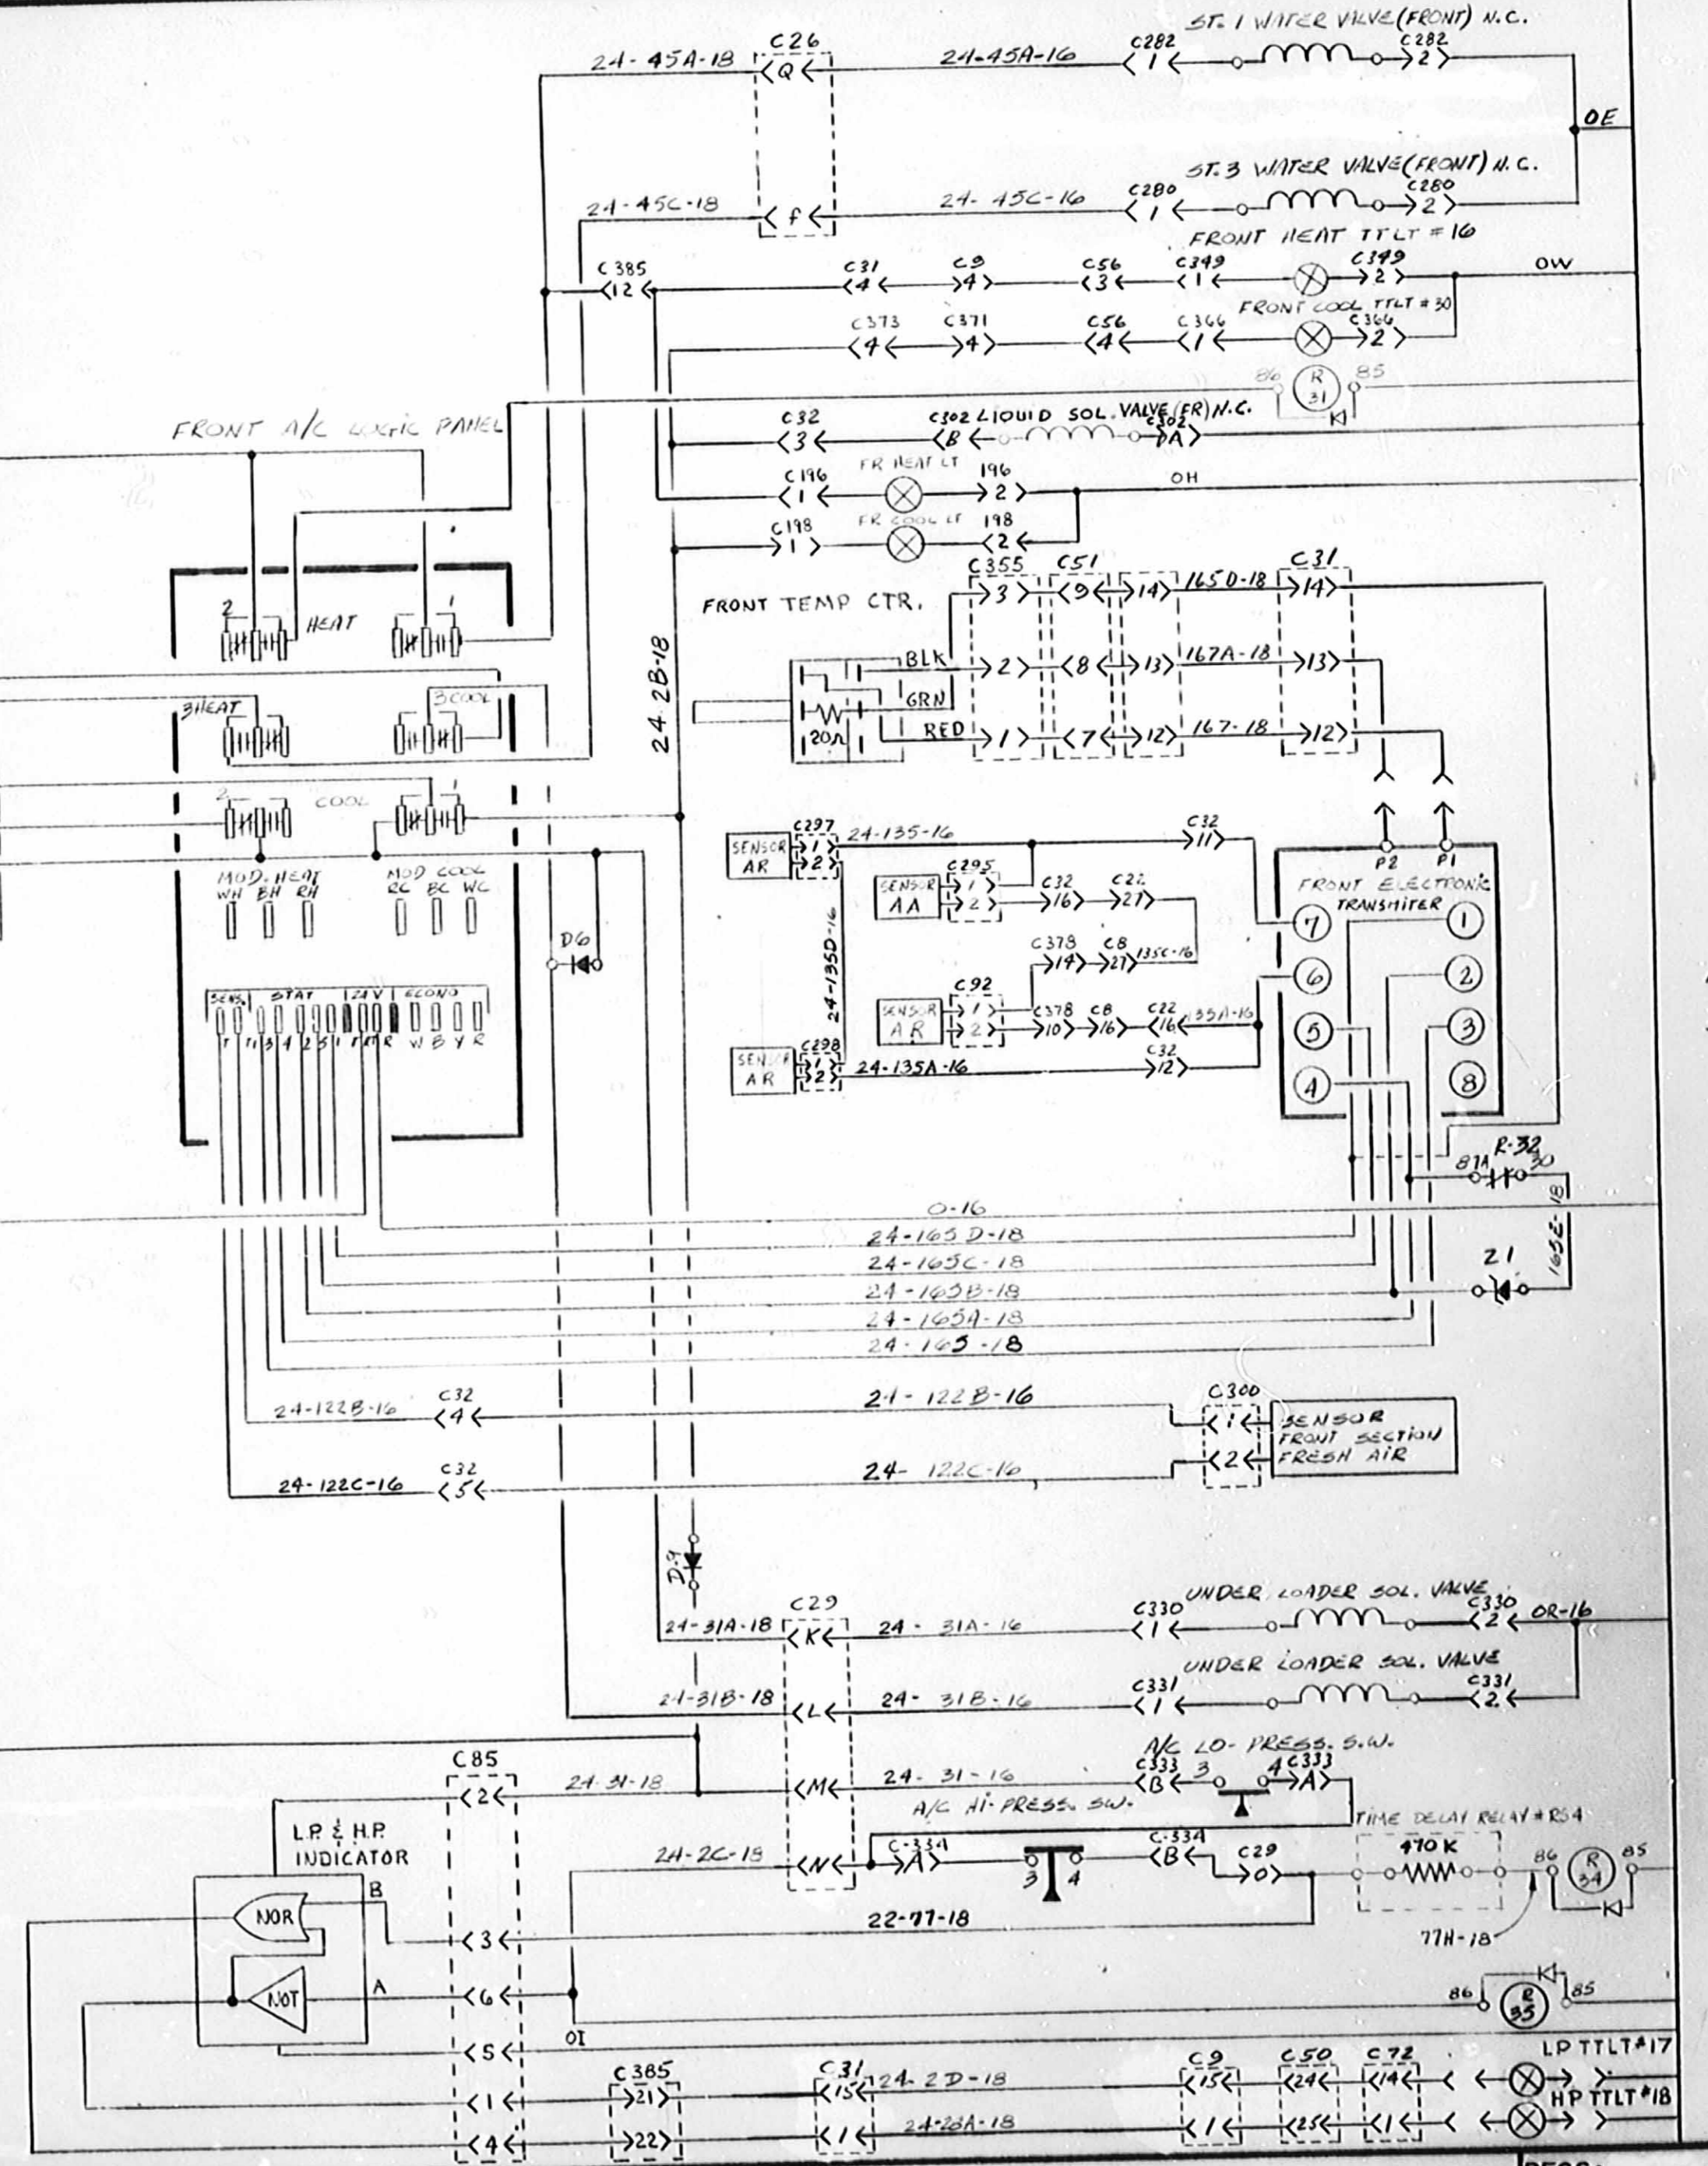 ST. 1 WATER VALVE (FRONT) N.C.
24-45A-18
C26
Q
24-45A-16
C282
1
C282
2
OE
ST. 3 WATER VALVE (FRONT) N.C.
24-45C-18
f
24-45C-16
C280
1
C280
2
FRONT HEAT TTLT #16
C385
12
C31
4
C9
4
C56
3
C349
1
C349
2
OW
FRONT COOL TTLT #30
C373
4
C371
4
C56
4
C366
1
C366
2
86
R
31
85
FRONT A/C LOGIC PANEL
C32
3
C302
B
LIQUID SOL. VALVE (FR) N.C.
C302
A
C196
1
FR HEAT LT
196
2
OH
C198
1
FR COOL LT
198
2
FRONT TEMP CTR.
C355
C51
C31
3
9
14
165D-18
14
BLK
2
8
13
167A-18
13
GRN
RED
1
7
12
167-18
12
20Ω
24-2B-18
2
HEAT
1
3HEAT
3COOL
2
COOL
1
MOD. HEAT
WH BH RH
MOD COOL
RC BC WC
D6
SENS.
STAT
24V
ECONO
T T1 3 4 2 5 1
R
W B Y R
SENSOR
AR
C297
1
2
24-135-16
C32
11
SENSOR
AA
C295
1
2
C32
16
C22
27
C378
14
C8
27
135C-16
SENSOR
AR
C92
1
2
C378
10
C8
16
C22
16
135A-16
24-135D-16
SENSOR
AR
C298
1
2
24-135A-16
C32
12
P2
P1
FRONT ELECTRONIC
TRANSMITER
7
1
6
2
5
3
4
8
R-32
87A
30
165E-18
21
0-16
24-165D-18
24-165C-18
24-165B-18
24-165A-18
24-165-18
24-122B-16
C32
4
24-122B-16
C300
1
2
SENSOR
FRONT SECTION
FRESH AIR
24-122C-16
C32
5
24-122C-16
D-9
UNDER LOADER SOL. VALVE
24-31A-18
C29
K
24-31A-16
C330
1
C330
2
OR-16
UNDER LOADER SOL. VALVE
24-31B-18
L
24-31B-16
C331
1
C331
2
A/C LO-PRESS. S.W.
C85
2
24-31-18
M
24-31-16
C333
B
3
4
C333
A
A/C HI-PRESS. SW.
L.P. & H.P.
INDICATOR
24-2C-18
N
C-334
A
3
4
C-334
B
C29
O
TIME DELAY RELAY # R54
470K
86
R
34
85
B
NOR
3
22-77-18
77H-18
A
NOT
6
OI
86
R
35
85
5
LP TTLT #17
1
C385
21
C31
15
24-2D-18
C9
15
C50
24
C72
14
HP TTLT #18
4
22
1
24-28A-18
1
25
1